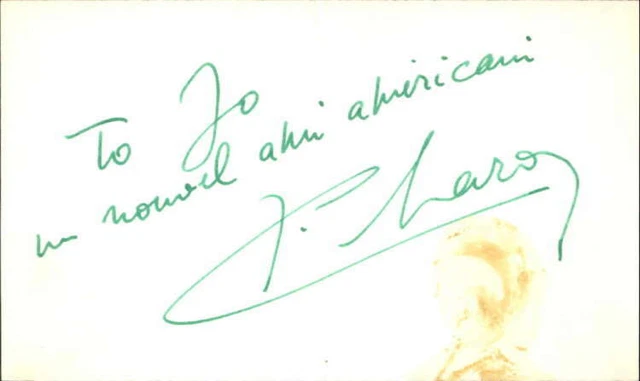 To Jo
un nouvel ami américain
J. Charon